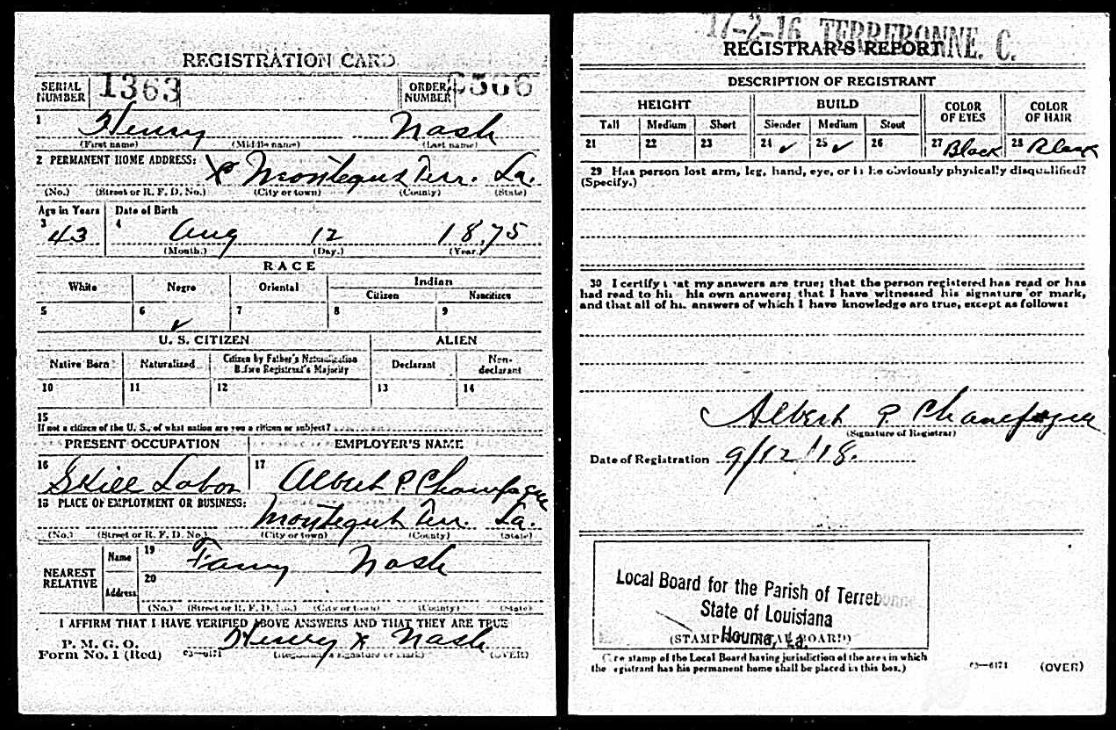 REGISTRATION CARD
SERIAL NUMBER 1363 ORDER NUMBER
1 Henry Nash
(First name) (Middle name) (Last name)
2 PERMANENT HOME ADDRESS:
X Montegut Terr. La.
(No.) (Street or R. F. D. No.) (City or town) (County) (State)
Age in Years Date of Birth
3 43 4 Aug 12 1875
(Month.) (Day.) (Year.)
RACE
White Negro Oriental Indian
Citizen Noncitizen
5 6 ✓ 7 8 9
U. S. CITIZEN ALIEN
Native Born Naturalized Citizen by Father's Naturalization Before Registrant's Majority Declarant Non-declarant
10 11 12 13 14
15
If not a citizen of the U. S., of what nation are you a citizen or subject?
PRESENT OCCUPATION EMPLOYER'S NAME
16 Skill Labor 17 Albert P Champagne
18 PLACE OF EMPLOYMENT OR BUSINESS:
Montegut Terr. La.
(No.) (Street or R. F. D. No.) (City or town) (County) (State)
NEAREST RELATIVE
Name 19 Fanny Nash
Address 20
(No.) (Street or R. F. D. No.) (City or town) (County) (State)
I AFFIRM THAT I HAVE VERIFIED ABOVE ANSWERS AND THAT THEY ARE TRUE
P. M. G. O.
Form No. 1 (Red) 03—6171 Henry X Nash
(Registrant's signature or mark) (OVER)
17-2-16 TERREBONNE. C.
REGISTRAR'S REPORT
DESCRIPTION OF REGISTRANT
HEIGHT BUILD COLOR OF EYES COLOR OF HAIR
Tall Medium Short Slender Medium Stout
21 22 23 24 ✓ 25 ✓ 26 27 Black 28 Black
29 Has person lost arm, leg, hand, eye, or is he obviously physically disqualified?
(Specify.)
30 I certify that my answers are true; that the person registered has read or has
had read to him his own answers; that I have witnessed his signature or mark,
and that all of his answers of which I have knowledge are true, except as follows:
Albert P. Champagne
(Signature of Registrar)
Date of Registration 9/12/18.
Local Board for the Parish of Terrebonne
State of Louisiana
Houma, La.
(STAMP OF LOCAL BOARD)
(The stamp of the Local Board having jurisdiction of the area in which
the registrant has his permanent home shall be placed in this box.)
03—6171 (OVER)